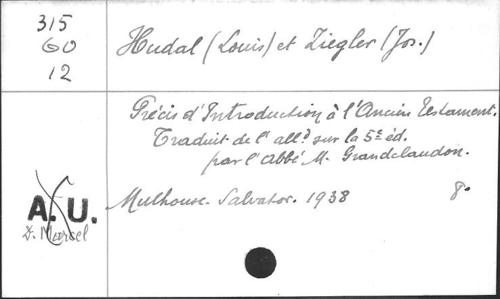 315
GO
12
Hudal (Louis) et Ziegler (Jos.)
Précis d'Introduction à l'Ancien Testament.
Traduit de l'all.d sur la 5e éd.
par l'Abbé M. Grandclaudon.
Mulhouse. Salvator. 1938 8°
A. U.
D. Marcel